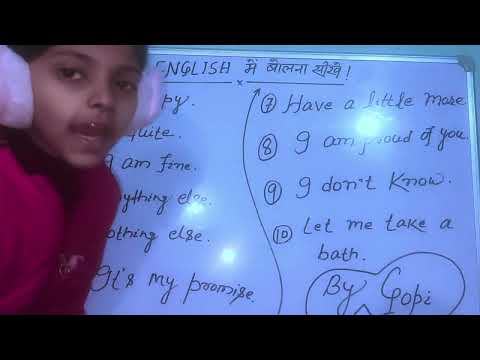 ENGLISH में बोलना सीखे !
am fine.
else.
else.
It's my promise.
⑦ Have a little more
⑧ I am proud of you.
⑨ I don't know.
⑩ Let me take a
bath.
By Gopi